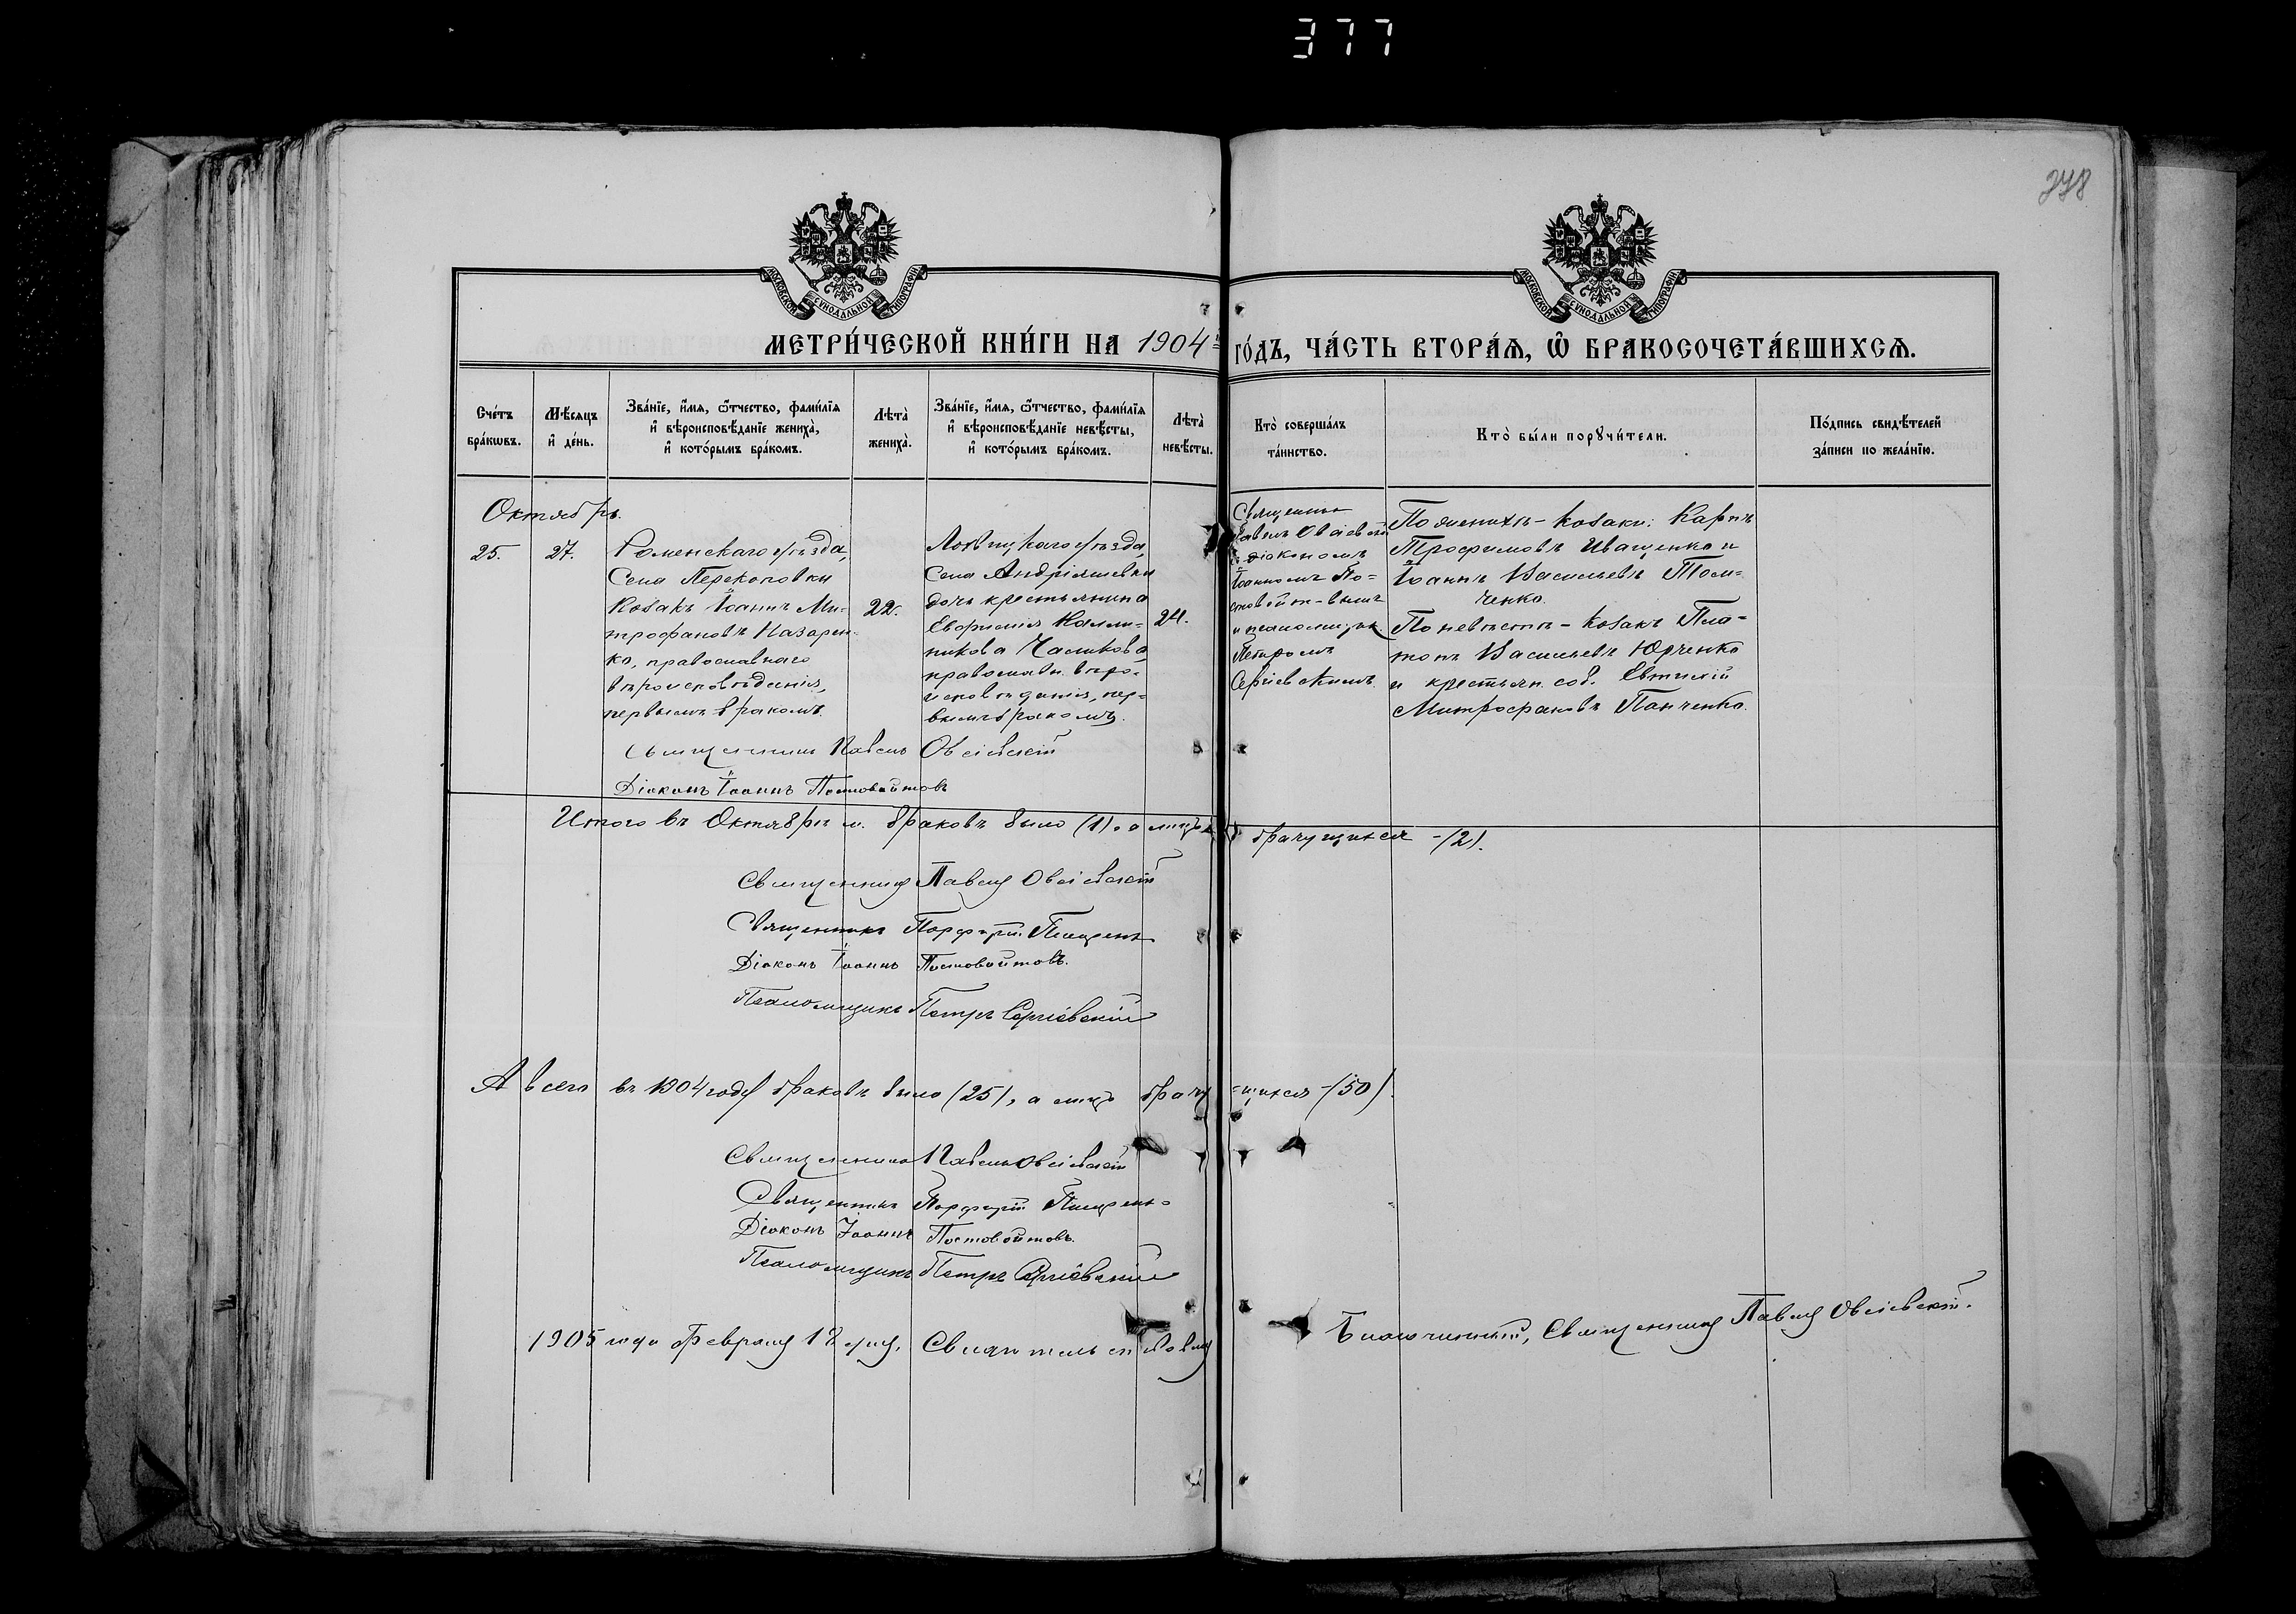 377
378
МОСКОВСКОЙ СѴНОДАЛЬНОЙ ТИПОГРАФІИ
МОСКОВСКОЙ СѴНОДАЛЬНОЙ ТИПОГРАФІИ
МЕТРИ́ЧЕСКОЙ КНИ́ГИ НА 1904 й
ГО́ДЪ, ЧА́СТЬ ВТОРА́Ѧ, Ѡ҆ БРАКОСОЧЕТА́ВШИХСѦ.
Сче́тъ
бра́кѡвъ.
Мѣ́сѧцъ
и҆ де́нь.
Зва́нїе, и҆́мѧ, ѻ҆́тчество, фами́лїѧ
и҆ вѣроисповѣ́данїе жениха̀,
и҆ кото́рымъ бра́комъ.
Лѣта̀
жениха̀.
Зва́нїе, и҆́мѧ, ѻ҆́тчество, фами́лїѧ
и҆ вѣроисповѣ́данїе невѣ́сты,
и҆ кото́рымъ бра́комъ.
Лѣта̀
невѣ́сты.
Кто̀ соверша́лъ
та́инство.
Кто̀ бы́ли порꙋчи́тели.
По́дпись свидѣ́телей
за́писи по жела́нїю.
Октябрь.
25.
27.
Роменскаго уѣзда,
Села Перекоповки
Козакъ Іоаннъ Ми-
трофановъ Назарен-
ко, православнаго
вѣроисповѣданія,
первымъ бракомъ.
22.
Лохвицкаго уѣзда,
Села Андріяшевки
дочь крестьянина
Евфимія
никова
православн. вѣро-
исповѣданія, пер-
вымъ бракомъ.
24.
Священник
Павелъ Овсіевскій
съ діакономъ
Іоанномъ По-
стовойтовымъ
и псаломщик
Петромъ
Сергіевскимъ.
По женихѣ - козаки: Карпъ
Трофимовъ Иващенко и
Іоаннъ Васильевъ Том-
ченко.
По невѣстѣ - козакъ Пла-
тонъ Васильевъ Юрченко
и крестьян. соб. Евтихій
Митрофановъ Панченко.
Священникъ Павелъ Овсіевскій
Діаконъ Іоаннъ Постовойтовъ
Итого въ Октябрѣ м. браковъ было (1), а лицъ брачущихся - (2).
Священникъ Павелъ Овсіевскій
Священникъ Порфирій
Діаконъ Іоаннъ Постовойтовъ.
Псаломщикъ Петръ Сергіевскій
А всего въ 1904 году браковъ было (25), а лицъ брачу=щихся - (50).
Священникъ Павелъ Овсіевскій
Священникъ Порфирій
Діаконъ Іоаннъ Постовойтовъ.
Псаломщикъ Петръ Сергіевскій
1905 года Февраля 12 дня, Свидѣтельствовалъ Благочинный, Священникъ Павелъ Овсіевскій.